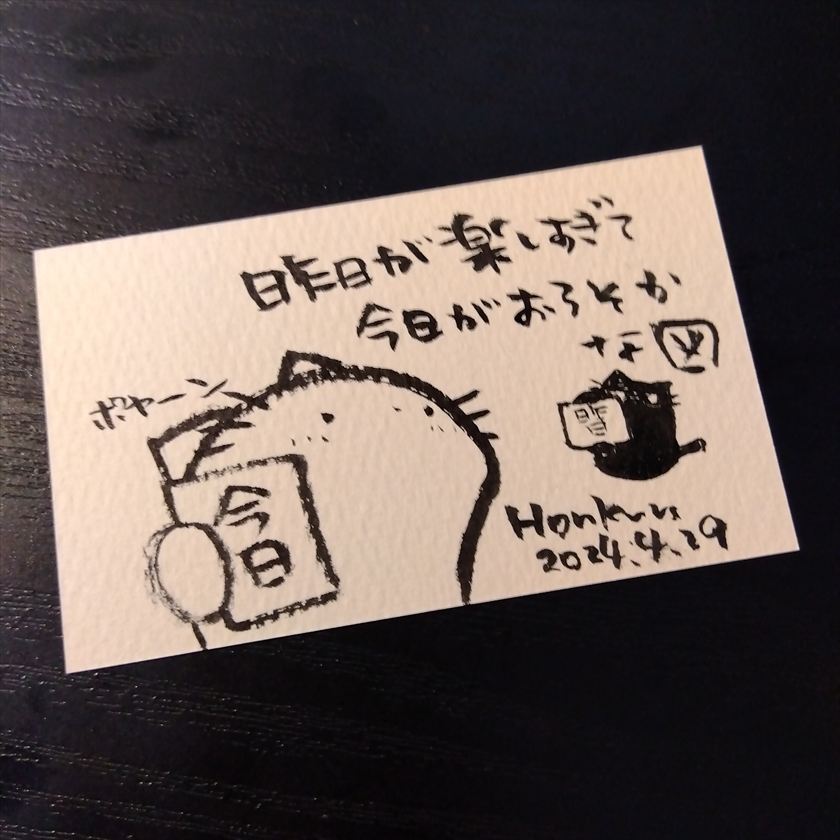 昨日が楽しすぎて
今日がおろそか
な図
ポヤーン
今日
昨日
Honkuns
2024.4.29